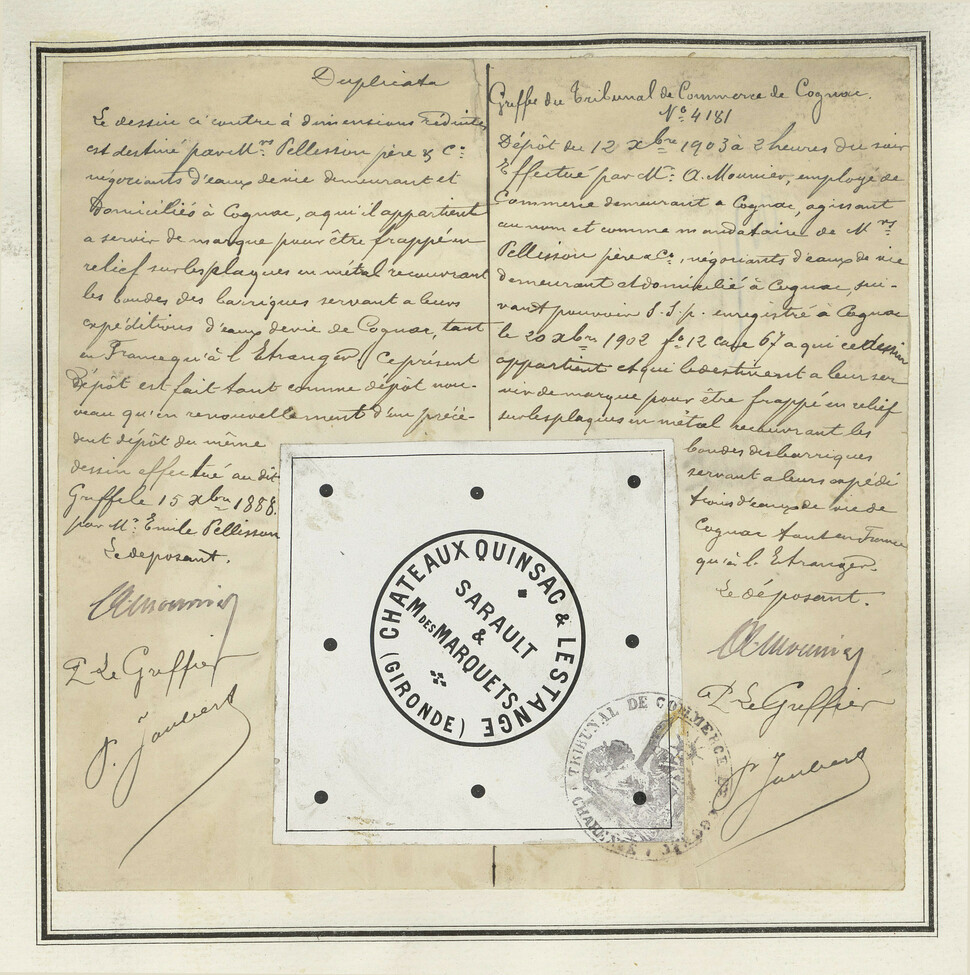 Duplicata
Le dessin ci contre à dimensions réduites
est destiné par Mrs Pellisson père & Cie
négociants d'eaux de vie demeurant et
domiciliés à Cognac, a qui il appartient
a servir de marque pour être frappé en
relief sur les plaques en métal recouvrant
les bondes des barriques servant a leurs
expéditions d'eaux de vie de Cognac, tant
en France qu'à l'Etranger. Ce présent
Dépôt est fait tant comme dépôt nou-
veau qu'en renouvellement d'un précé-
dent dépôt du même
dessin effectué au dit
Greffe le 15 xbre 1888
par Mr Emile Pellisson
Le déposant.
A. Mounier
P. Le Greffier
P. Jaubert
Greffe du Tribunal de Commerce de Cognac.
No 4181
Dépôt du 12 xbre 1903 à 2 heures du soir
Effectué par Mr A. Mounier, employé de
Commerce demeurant a Cognac, agissant
au nom et comme mandataire de Mrs
Pellisson père & Cie, négociants d'eaux de vie
demeurant et domicilié à Cognac, sui-
vant pouvoir S.S.p. enregistré à Cognac
le 20 xbre 1902 fo 12 case 67 a qui ce dessin
appartient et qui le destinent a leur ser
vir de marque pour être frappé en relief
sur les plaques en métal recouvrant les
bondes des barriques
servant a leurs expédi
tions d'eaux de vie de
Cognac tant en France
qu'à l'Etranger.
Le déposant.
A. Mounier
P. Le Greffier
P. Jaubert
CHATEAUX QUINSAC & LESTANGE
(GIRONDE)
SARAULT
&
MDES MARQUETS
TRIBUNAL DE COMMERCE DE COGNAC
CHARENTE